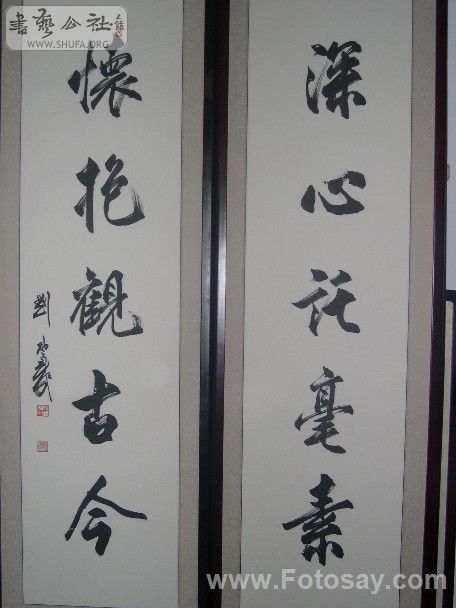 深心託毫素
懷抱觀古今
書藝公社
WWW.SHUFA.ORG
www.Fotosay.com